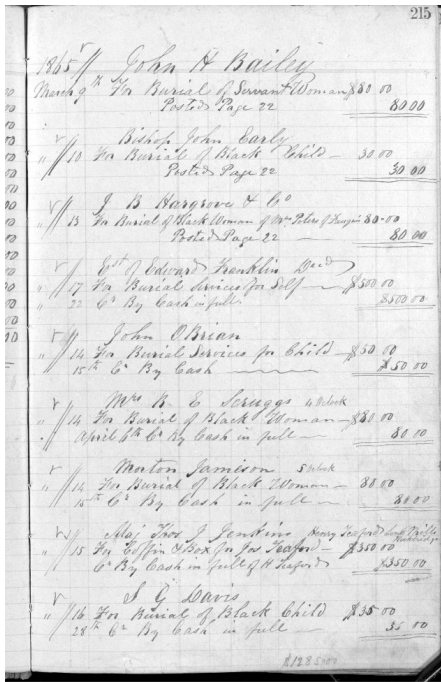 215
1865 John H Bailey
March 9th For Burial of Servant Woman $80 00
Posted Page 22 80 00
Bishop John Early
" 10 For Burial of Black Child — 30 00
Posted Page 22 30 00
J B Hargrove & Co
" 13 For Burial of Black Woman of Wm Peters of 80-00
Posted Page 22 — 80 00
Est of Edward Franklin Decd
" 17 For Burial Services for Self — $500 00
" 22 Cr By Cash in full. $500 00
John OBrian
" 14 For Burial Services for Child — $50 00
15th Cr By Cash — $50 00
Mrs R E Scruggs 4 Oclock
" 14 For Burial of Black Woman — $80 00
" April 6th Cr By Cash in full — 80 00
Morton Jamison 5 Oclock
" 14 For Burial of Black Woman — 80 00
15th Cr By Cash in full — 80 00
Maj Thos J Jenkins Henry Teaford
" 15 For Coffin & Box for Jos Teaford — $350 00
Cr By Cash in full of H Teaford $350 00
J G Davis
" 16 For Burial of Black Child $35 00
28th Cr By Cash in full — 35 00
$1285.00